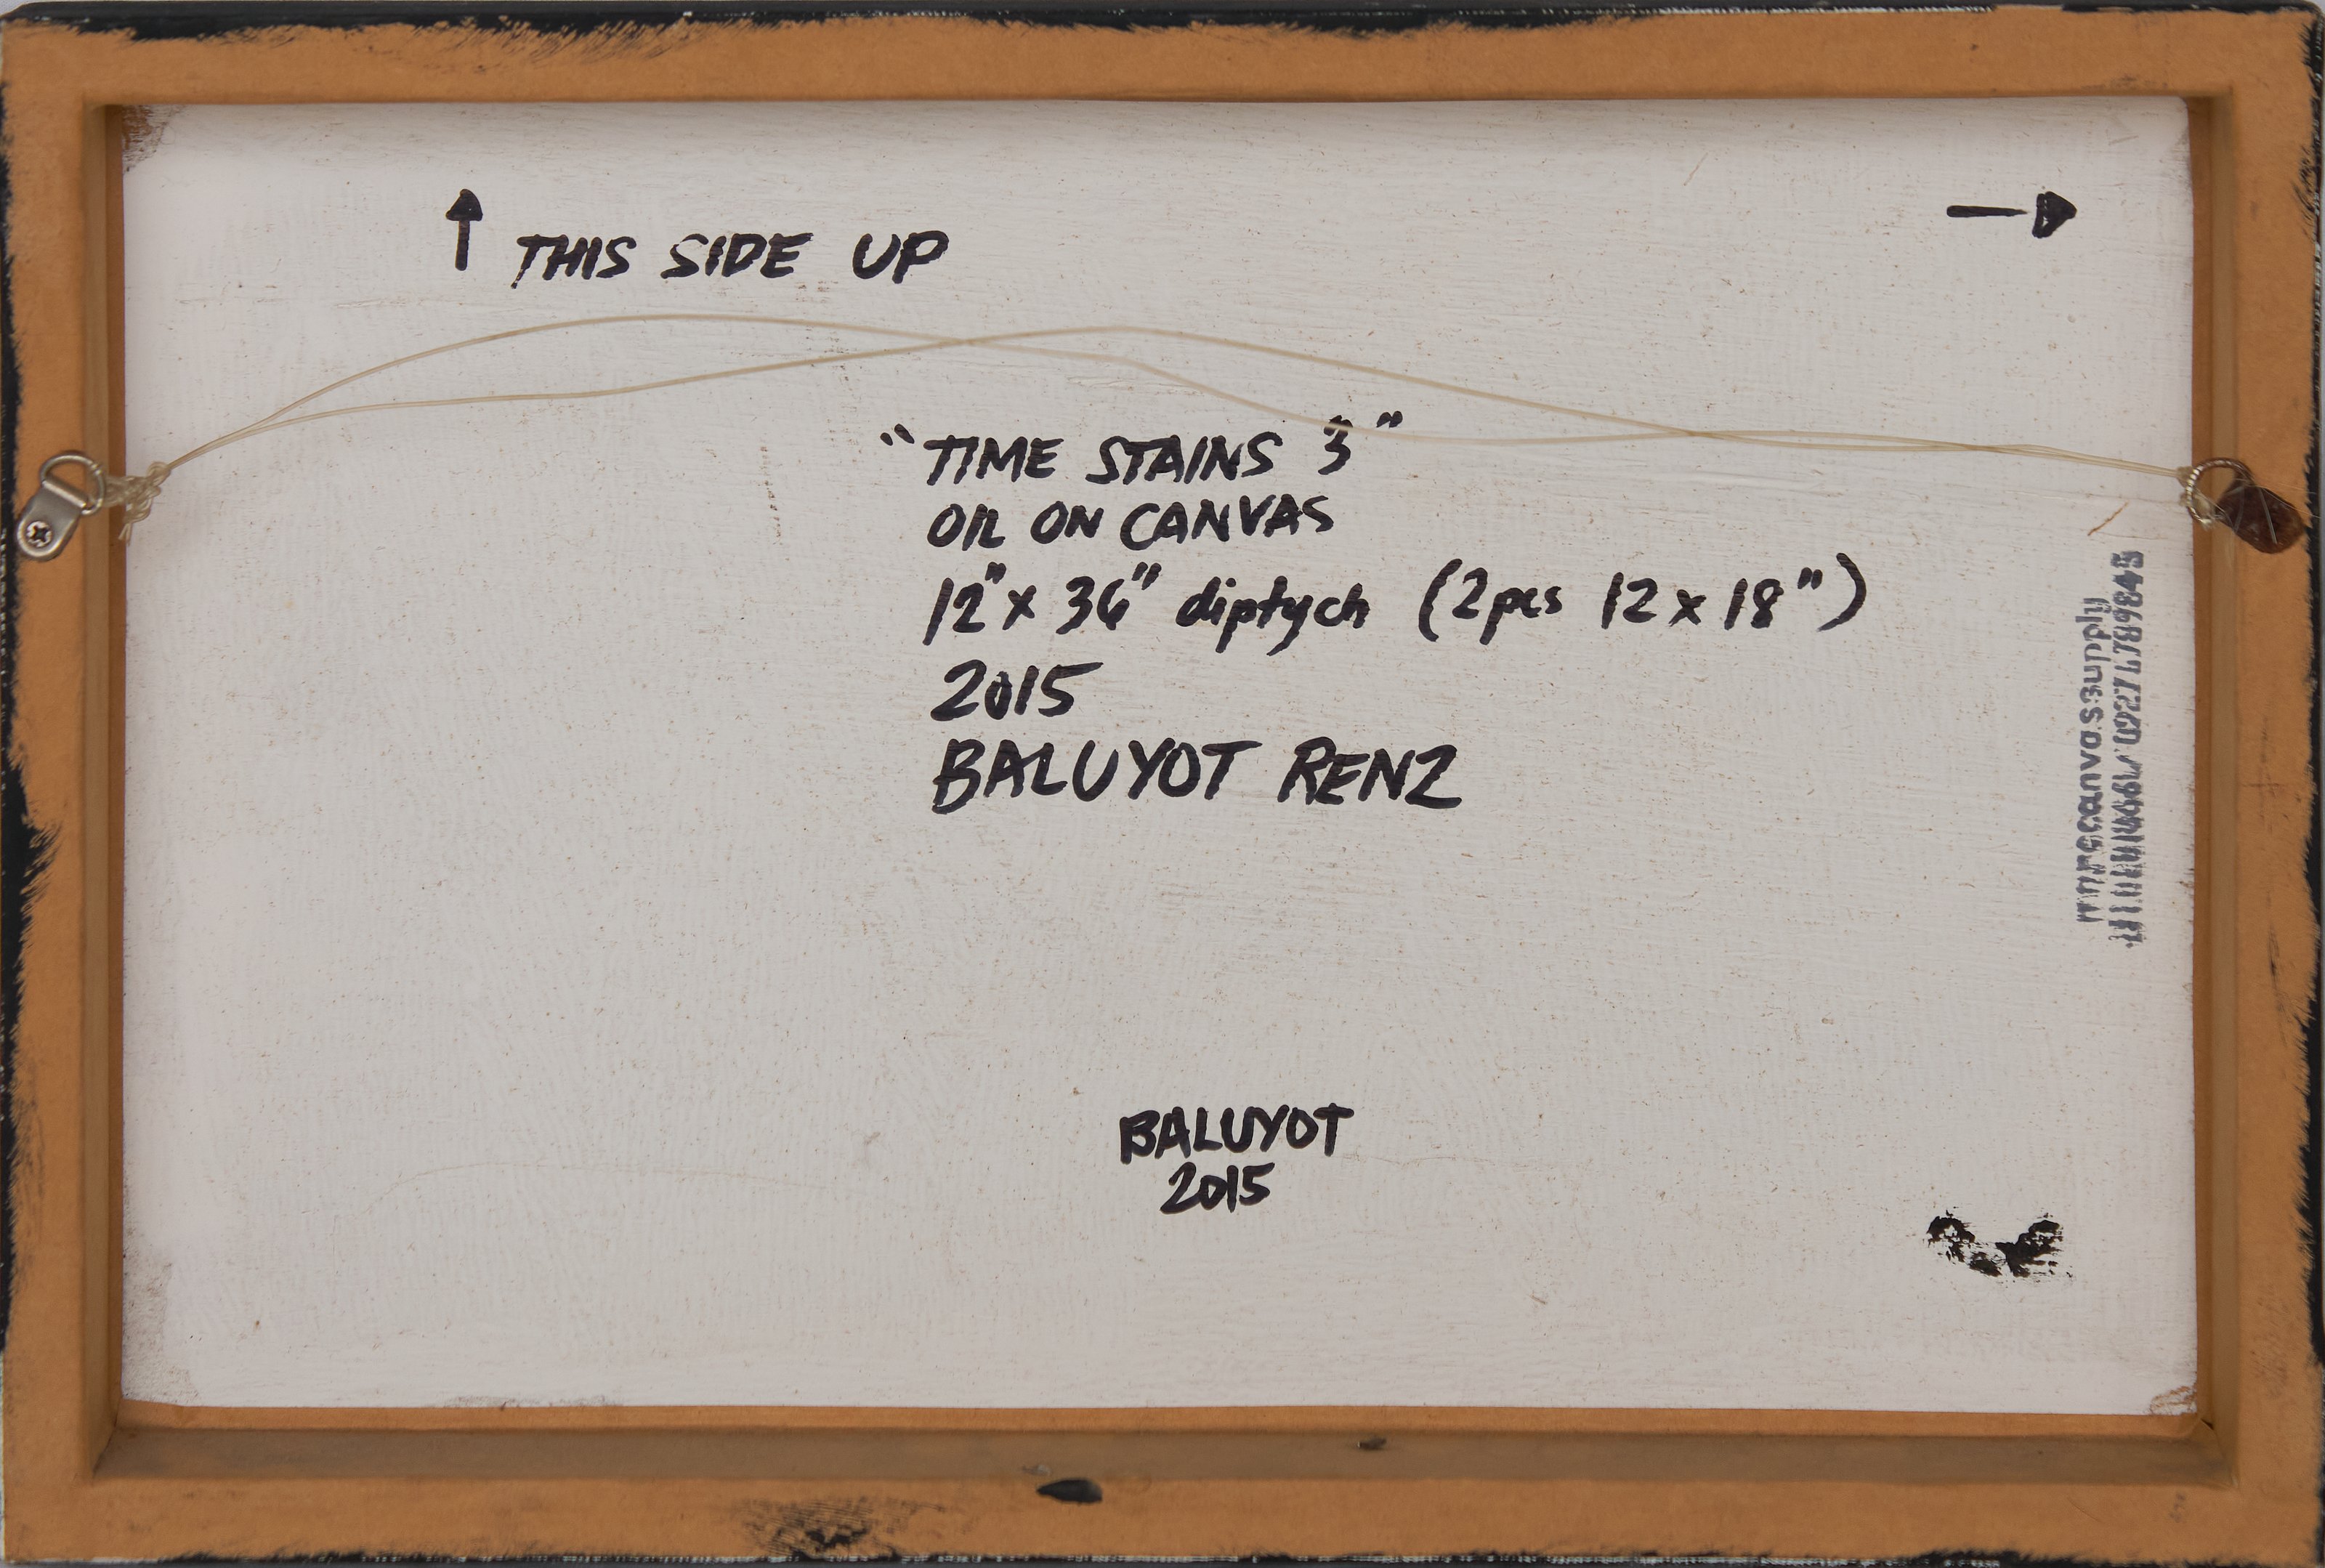 ↑ THIS SIDE UP →
“TIME STAINS 3”
OIL ON CANVAS
12"x 36" diptych (2pcs 12 x 18")
2015
BALUYOT RENZ
BALUYOT
2015
canvas supply